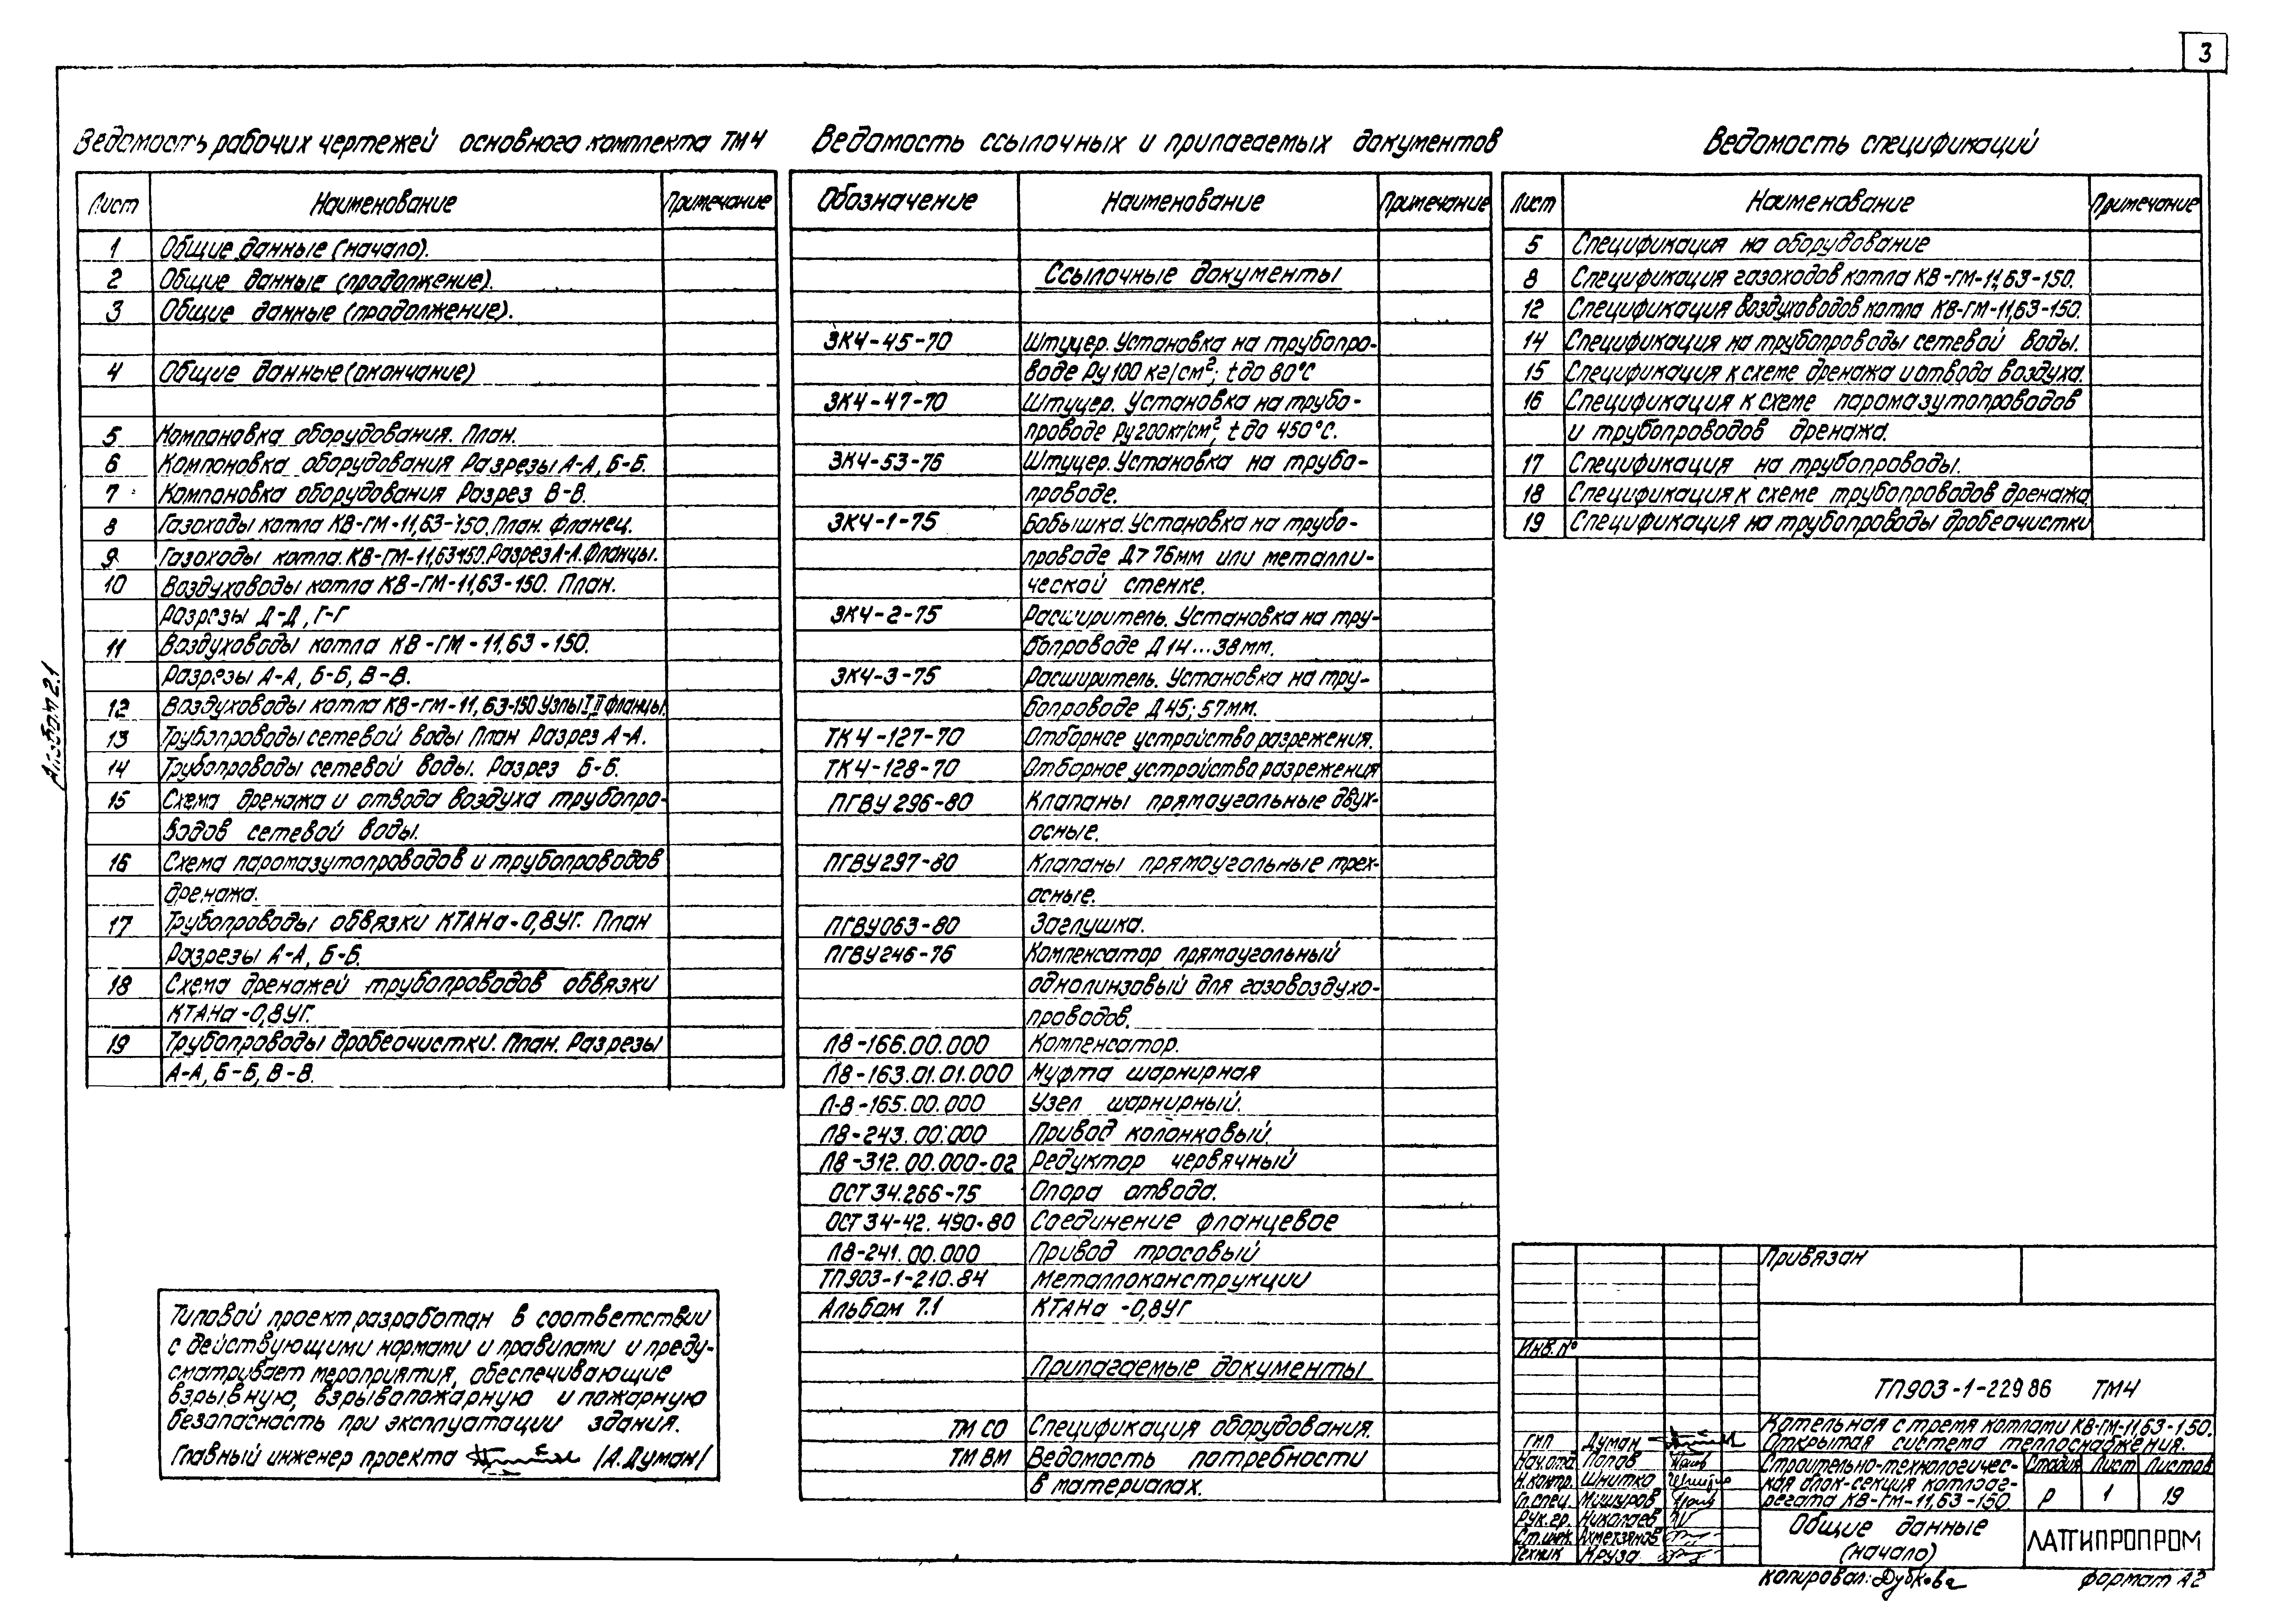 3
Ведомость рабочих чертежей основного комплекта ТМ4
Лист Наименование Примечание
1 Общие данные (начало).
2 Общие данные (продолжение).
3 Общие данные (продолжение).
4 Общие данные (окончание)
5 Компановка оборудования. План.
6 Компоновка оборудования Разрезы А-А, Б-Б.
7 Компановка оборудования Разрез В-В.
8 Газоходы котла КВ-ГМ-11,63-150. План. Фланец.
9 Газоходы котла. КВ-ГМ-11,63-150. Разрез А-А. Фланцы.
10 Воздуховоды котла КВ-ГМ-11,63-150. План.
Разрезы Д-Д, Г-Г
11 Воздуховоды котла КВ-ГМ-11,63-150.
Разрезы А-А, Б-Б, В-В.
12 Воздуховоды котла КВ-ГМ-11,63-150 Узлы I, II Фланцы.
13 Трубопроводы сетевой воды План Разрез А-А.
14 Трубопроводы сетевой воды. Разрез Б-Б.
15 Схема дренажа и отвода воздуха трубопро-
водов сетевой воды.
16 Схема паромазутопроводов и трубопроводов
дренажа.
17 Трубопроводы обвязки КТАНа-0,8УГ. План
Разрезы А-А, Б-Б.
18 Схема дренажей трубопроводов обвязки
КТАНа-0,8УГ.
19 Трубопроводы дробеочистки. План. Разрезы
А-А, Б-Б, В-В.
Типовой проект разработан в соответствии
с действующими нормами и правилами и преду-
сматривает мероприятия, обеспечивающие
взрывную, взрывопожарную и пожарную
безопасность при эксплуатации здания.
Главный инженер проекта /А.Думан/
Альбом 2.1
Ведомость ссылочных и прилагаемых документов
Обозначение Наименование Примечание
Ссылочные документы
ЗК4-45-70 Штуцер. Установка на трубопро-
воде Ру 100 кг/см²; t до 80°С
ЗК4-47-70 Штуцер. Установка на трубо-
проводе Ру 200 кг/см², t до 450°С.
ЗК4-53-76 Штуцер. Установка на трубо-
проводе.
ЗК4-1-75 Бобышка. Установка на трубо-
проводе Д>76мм или металли-
ческой стенке.
ЗК4-2-75 Расширитель. Установка на тру-
бопроводе Д 14...38мм.
ЗК4-3-75 Расширитель. Установка на тру-
бопроводе Д45; 57мм.
ТК4-127-70 Отборное устройство разрежения.
ТК4-128-70 Отборное устройство разрежения
ПГВУ 296-80 Клапаны прямоугольные двух-
осные.
ПГВУ297-80 Клапаны прямоугольные трех-
осные.
ПГВУ063-80 Заглушка.
ПГВУ246-76 Компенсатор прямоугольный
однолинзовый для газовоздухо-
проводов.
Л8-166.00.000 Компенсатор.
Л8-163.01.01.000 Муфта шарнирная
Л-8-165.00.000 Узел шарнирный.
Л8-243.00.000 Привод колонковый.
Л8-312.00.000-02 Редуктор червячный
ОСТ 34.266-75 Опора отвода.
ОСТ 34-42.490-80 Соединение фланцевое
Л8-241.00.000 Привод тросовый
ТП903-1-210.84 Металлоконструкции
Альбом 7.1 КТАНа -0,8УГ
Прилагаемые документы
ТМ СО Спецификация оборудования.
ТМ ВМ Ведомость потребности
в материалах.
Ведомость спецификаций
Лист Наименование Примечание
5 Спецификация на оборудование
8 Спецификация газоходов котла КВ-ГМ-11,63-150.
12 Спецификация воздуховодов котла КВ-ГМ-11,63-150.
14 Спецификация на трубопроводы сетевой воды.
15 Спецификация к схеме дренажа и отвода воздуха.
16 Спецификация к схеме паромазутопроводов
и трубопроводов дренажа.
17 Спецификация на трубопроводы.
18 Спецификация к схеме трубопроводов дренажа
19 Спецификация на трубопроводы дробеочистки
Привязан
Инв. №
ТП903-1-229 86 ТМ4
Котельная с тремя котлами КВ-ГМ-11,63-150.
Открытая система теплоснабжения.
ГИП Думан
Нач.отд Попов
Н.контр. Шнитко
Гл.спец. Мишуров
Рук.гр. Николаев
Ст.инж. Ахметзянов
Техник Круза
Строительно-технологичес-
кая блок-секция котлоаг-
регата КВ-ГМ-11,63-150.
Стадия Лист Листов
Р 1 19
Общие данные
(начало)
ЛАТГИПРОПРОМ
Копировал: Дубкова
Формат А2